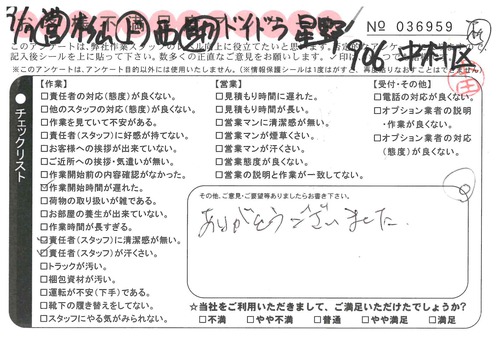 № 036959
このアンケートは、弊社作業スタッフの
※このアンケートは、アンケート目的以外には一切使用しません。(※情報保護シールは1度はがすと、再度貼りなおすことはできません。)
906
チェックリスト
【作業】
□責任者の対応(態度)が良くない。
□他のスタッフの対応(態度)が良くない。
□作業を見ていて不安がある。
□責任者(スタッフ)に好感が持てない。
□お客様への挨拶が出来ていない。
□ご近所への挨拶・気遣いが無い。
□作業開始前の内容確認がなかった。
□作業開始時間が遅れた。
□荷物の取り扱いが雑である。
□お部屋の養生が出来ていない。
□作業時間が長すぎる。
□責任者(スタッフ)に清潔感が無い。
□責任者(スタッフ)が汗くさい。
□トラックが汚い。
□梱包資材が汚い。
□運転が不安(下手)である。
□靴下の履き替えをしてない。
□スタッフにやる気がみられない。
【営業】
□見積もり時間に遅れた。
□見積もり時間が長い。
□営業マンに清潔感が無い。
□営業マンが煙草くさい。
□営業マンが汗くさい。
□営業態度が良くない。
□営業の説明と作業が一致してない。
【受付・その他】
□電話の対応が良くない。
□オプション業者の説明
・作業が良くない。
□オプション業者の対応
(態度)が良くない。
その他、ご意見・ご要望等ありましたらお書き下さい。
ありがとうございました
☆当社をご利用いただきまして、ご満足いただけたでしょうか?
□不満 □やや不満 □普通 □やや満足 □満足